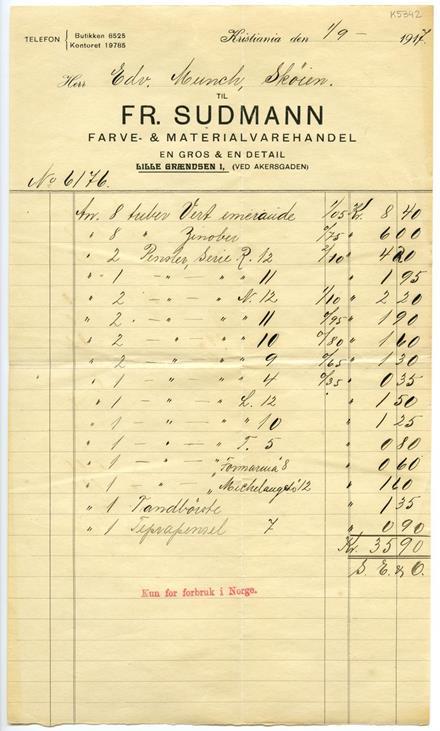 K5342
TELEFON { Butikken 6525
Kontoret 19785
Kristiania den 1/9 - 1917.
Herr Edv. Munch, Skøien.
TIL
FR. SUDMANN
FARVE- & MATERIALVAREHANDEL
EN GROS & EN DETAIL
LILLE GRÆNDSEN 1, (VED AKERSGADEN)
No 6176.
An. 8 tuber Vert emeraude 1/05 Kr. 8 40
" 8 " Zinober 0/75 " 6 00
" 2 Pensler, Serie R. 12 2/10 " 4 20
" 1 - " - " 11 " 1 95
" 2 - " - " N. 12 1/10 " 2 20
" 2 - " - " 11 0/95 " 1 90
" 2 - " - " 10 0/80 " 1 60
" 2 - " - " 9 0/65 " 1 30
" 1 - " - " 4 0/35 " 0 35
" 1 - " - " L. 12 " 1 50
" 1 - " - " 10 " 1 25
" 1 - " - " T. 5 " 0 80
" 1 - " - " 8 " 0 60
" 1 - " - " 12 " 1 10
" 1 Tandbørste " 1 35
" 1 7 " 0 90
Kr. 35 90
S. E. & O.
Kun for forbruk i Norge.